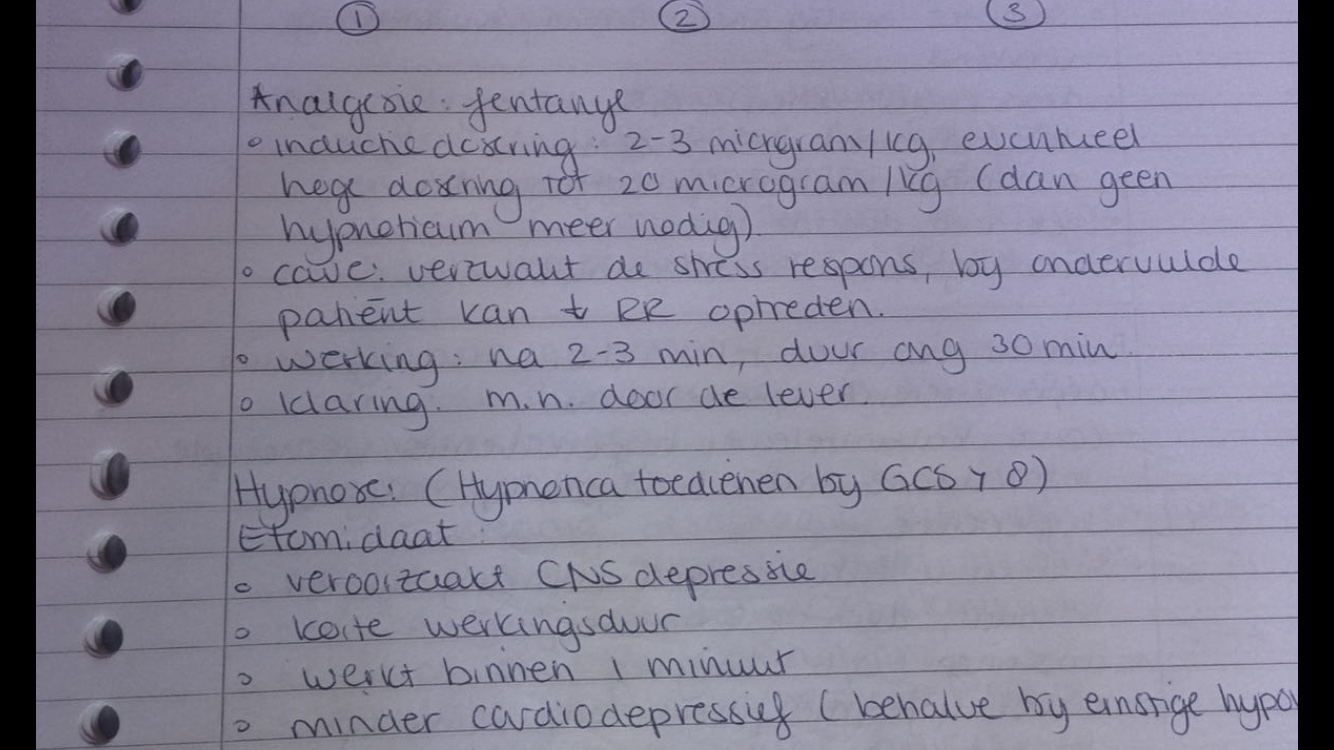 ① ② ③
Analgesie: fentanyl
◦ inductiedosering: 2-3 micrgram/kg, eventueel
hoge dosering tot 20 microgram/kg (dan geen
hypnoticum meer nodig)
◦ cave: verzwakt de stress respons, by ondervulde
patiënt kan ↓ RR optreden.
◦ werking: na 2-3 min, duur ong 30 min
◦ klaring. m.n. door de lever.
Hypnose: (Hypnotica toedienen by GCS > 8)
Etomidaat:
◦ veroorzaakt CNS depressie
◦ korte werkingsduur
◦ werkt binnen 1 minuut
◦ minder cardiodepressief (behalve by ernstige hypo